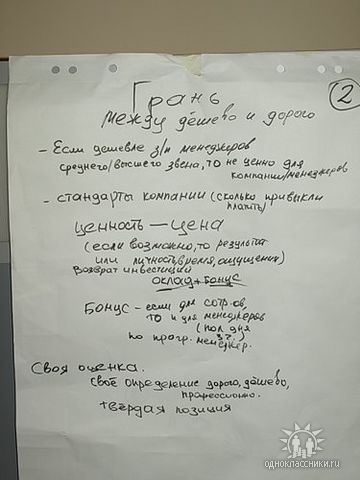 Грань
между дёшево и дорого
2
- Если дешевле з/п менеджеров
среднего/высшего звена, то не ценно для
компании/менеджеров
- стандарты компании (сколько привыкли
платить)
ценность — цена
(если возможно, то результат
или личность, время, ощущения)
Возврат инвестиций
оклад + бонус
Бонус - если для сотр-ов,
то и для менеджеров
(пол дня
по прогр. менеджер.
Своя оценка.
своё определение дорого, дёшево,
профессионо.
твёрдая позиция
одноклассники.ru